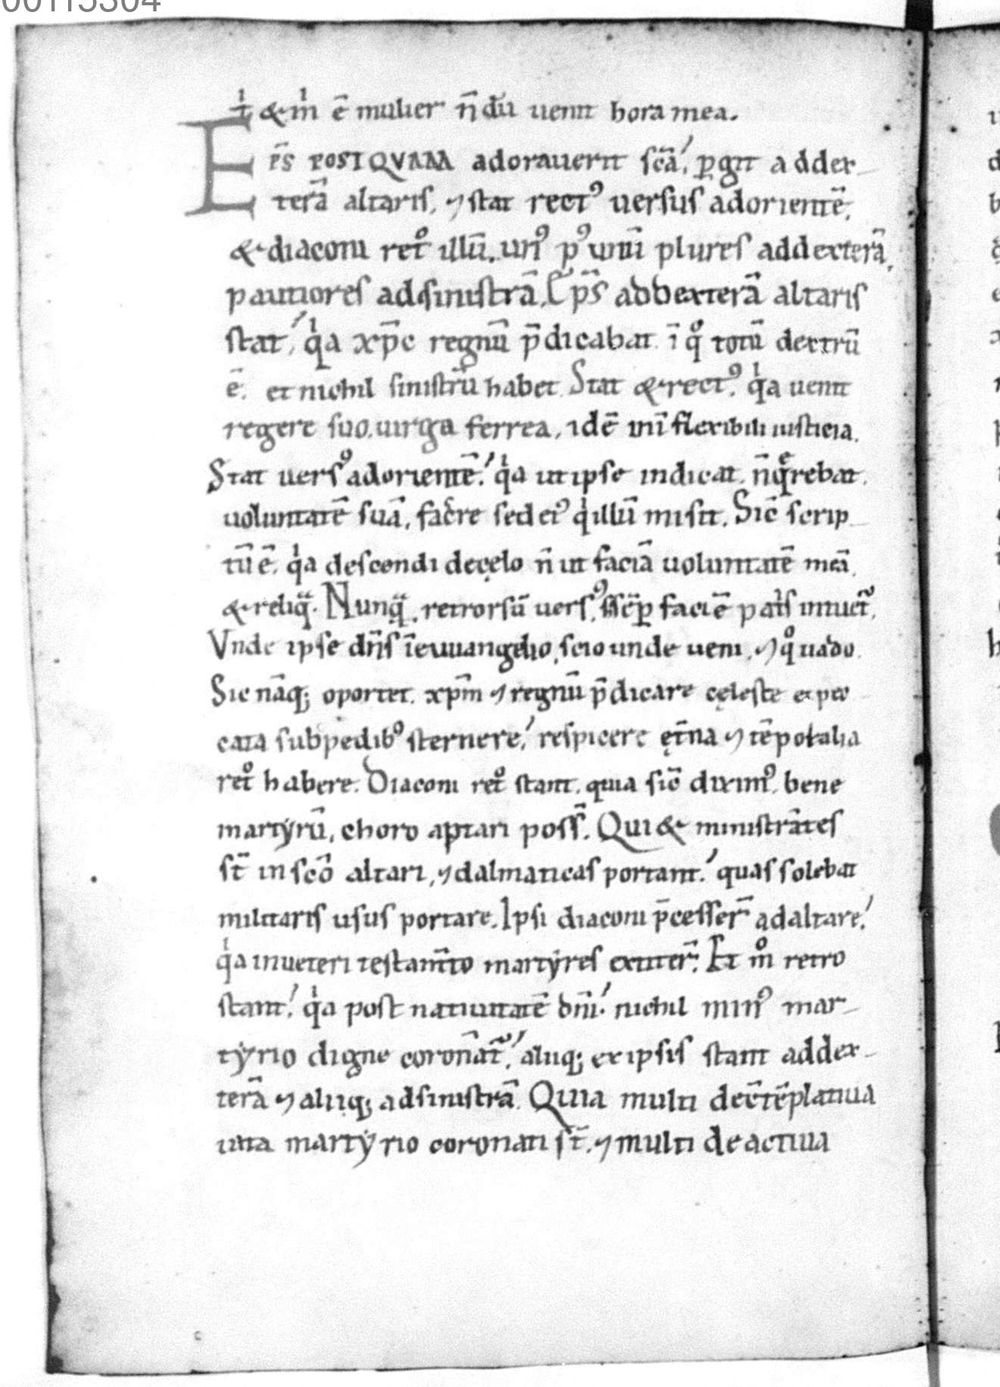 00115304
t̍ & m̍ ē mulier n̄ dū uenit hora mea.
EP̄S POSTQVAM adorauerit sc̄a, ꝑgit addex-
terā altaris, ⁊ stat rectꝰ uersus adorientē,
& diaconi ret͛o illū. unꝰ pꝰ unū plures addexterā,
pauciores adsinistrā. Ep̄s addexterā altaris
stat, q̍a xp̄c regnū p̄dicabat. ī q̊ totū dextrū
ē. et nichil sinistrū habet. Stat & rectꝰ. q̍a uenit
regere suo. uirga ferrea, idē inī flexibili iusticia.
Stat uersꝰ adorientē. q̍a ut ipse indicat. n̄ q̄rebat.
uoluntatē suā, fac̄re sed eiꝰ q̍ illū misit. Sic̄ scrip-
tū ē. q̍a descendi decęlo n̄ ut faciā uoluntatē meā,
& reliq̄. Nunq̄. retrorsū uersꝰ, sēp̄ faciē pat̍s intuet᷑,
Vnde ipse dn̄s ī euuangelio, scio unde ueni, ⁊ q̊ uado.
Sic nāq; oportet. xp̄m ⁊ regnū p̄dicare cęleste et pec
cata subpedibꝰ sternere, respicere ęt̄na ⁊ tēporalia
ret͛o habere. Diaconi ret͛o stant. quia sic̄ diximꝰ. bene
martyrū, choro aptari poss̄. Qui & ministrātes
st̄ in sc̄o altari, ⁊ dalmaticas portant. quas solebat
militaris usus portare. Ipsi diaconi p̄cesser̄ adaltare,
q̍a inueteri testam̄to martyres extiter̄. Et m̊ retro
stant, q̍a post natiuitatē dn̄i. nichil minꝰ mar-
tyrio digne coronāt᷑, aliiq; ex ipsis stant addex-
terā ⁊ aliiq; adsinistrā. Quia multi dec̄tēplatiua
uita martyrio coronati st̄. ⁊ multi deactiua